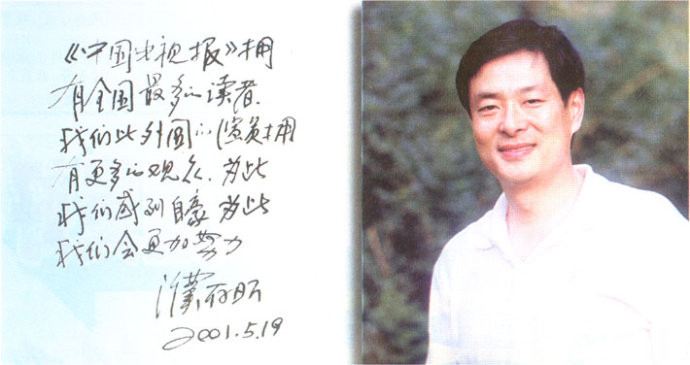 《中国电视报》拥
有全国最多的读者.
我们比外国的演员拥
有更多的观众. 为此
我们感到自豪 为此
我们会更加努力
濮存昕
2001.5.19